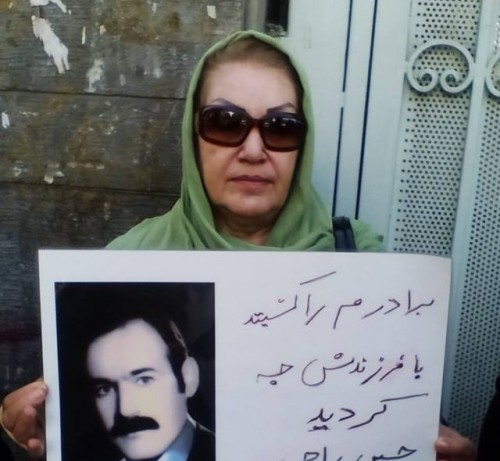 برادرم را کشتید
با فرزندش چه
کردید
حسین